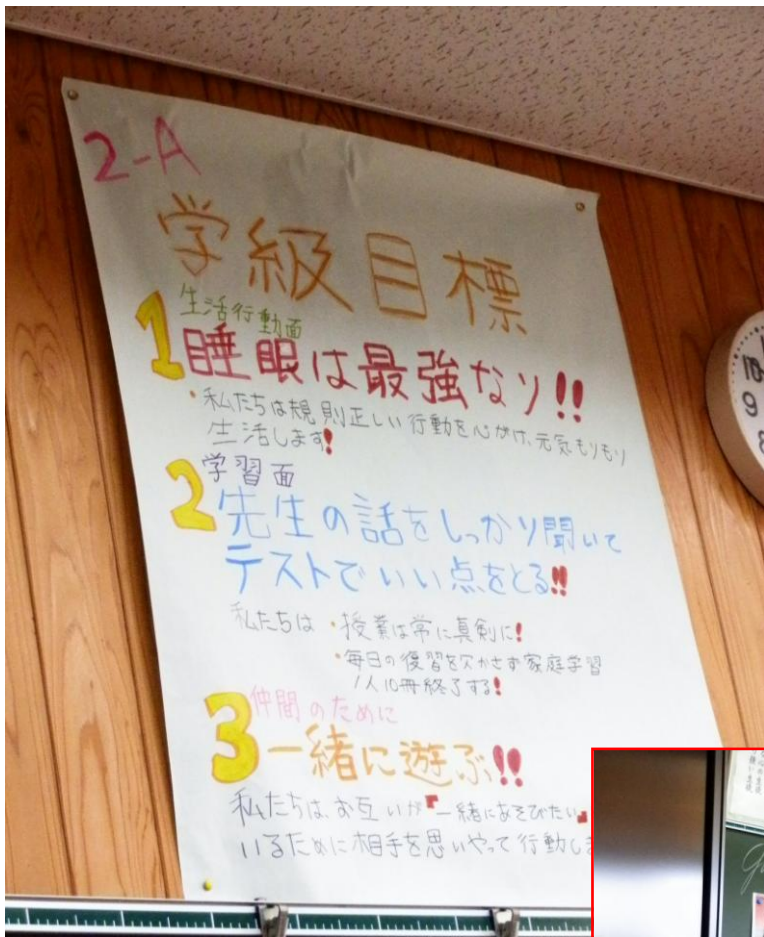 2-A
学級目標
1 生活行動面
睡眠は最強なり!!
・私たちは規則正しい行動を心がけ、元気もりもり
生活します!
2 学習面
先生の話をしっかり聞いて
テストでいい点をとる!!
私たちは ・授業は常に真剣に!
・毎日の復習を欠かさず家庭学習
1人10冊終了する!
3 仲間のために
一緒に遊ぶ!!
私たちは、お互いが『一緒にあそびたい』
いるために相手を思いやって行動しま
10
9
8